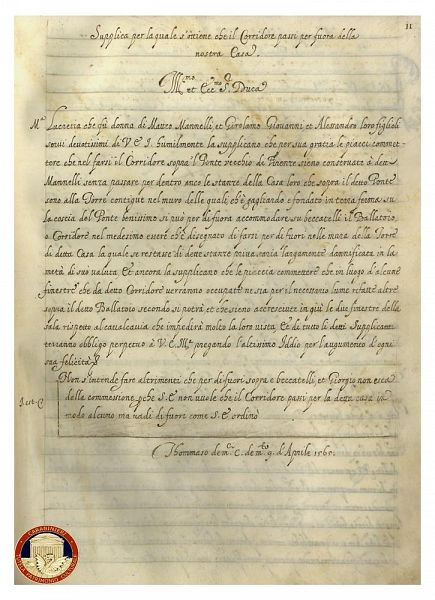 11
Supplica per la quale s'ottiene che il Corridore passi per fuora della
nostra Casa.
Ill.mo et Ecc.mo S. Duca
M.a Lucretia che fù donna di Matteo Mannelli, et Girolamo Giovanni, et Alessandro loro figlioli
servi devotissimi di V. E. I. humilmente la supplicano che per sua gratia le piacci commet=
tere che nel farsi il Corridore sopra il Ponte vecchio di Firenze sieno conservate à detti
Mannelli senza passare per dentro anco le stanze della Casa loro che sopra il detto Ponte
sono alla Torre contigue nel muro delle quali ch'è gagliardo e fondato in terra ferma su
la coscia del Ponte benissimo si può per di fuora accommodare su beccatelli il Ballatoio,
o Corridore nel medesimo essere che è disegnato di farsi per di fuori nelle mura della Torre
di detta Casa la quale se restasse di dette stanze priva saria largamente dannificata in la
metà di sua valuta. Et ancora la supplicano che le piaccia commettere che in luogo d'alcune
finestre che da detto Corridore verranno occupate ne sia per il necessario lume rifatte altre
sopra il detto Ballatoio secondo si potrà et che sieno accresciute in giù le due finestre della
sala rispetto al cavalcavia che impedirà molto la loro vista. Et di tutto li detti Supplicanti
terranno obbligo perpetuo à V. E. Ill.ma pregando l'altissimo Iddio per l'augumento d'ogni
sua felicità
Non s'intende fare altrimenti che per di fuori sopra e beccatelli, et Giorgio non esca
della commessione perche S. E. non vuole che il Corridore passi per la detta casa in
modo alcuno ma vadi di fuori come S. E. ordinò
Thommaso de m.ci C. de m.to 9. d'Aprile 1565.
CARABINIERI
TUTELA PATRIMONIO CULTURALE